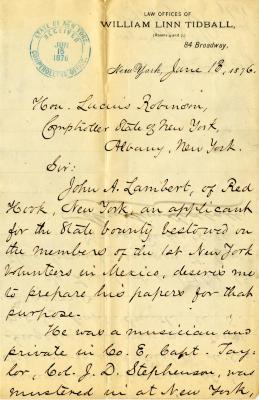 LAW OFFICES OF
WILLIAM LINN TIDBALL,
84 Broadway,
STATE OF NEW YORK
RECEIVED
JUN
15
1876
COMPTROLLER'S OFFICE
New York, June 13, 1876.
Hon. Lucius Robinson,
Comptroller State of New York,
Albany, New York.
Sir:
John A. Lambert, of Red
Hook, New York, an applicant
for the State bounty bestowed on
the members of the 1st New York
Volunteers in Mexico, desires me
to prepare his papers for that
purpose.
He was a musician and
private in Co. E, Capt. Tay-
lor, Col. J. D. Stephenson, was
mustered in at New York,